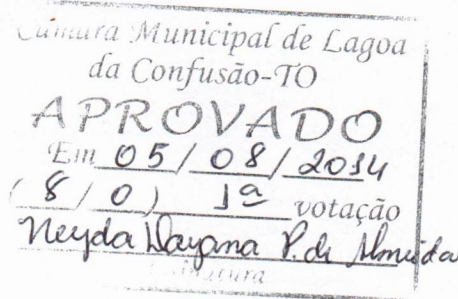 Camara Municipal de Lagoa
da Confusão-TO
APROVADO
Em 05/08/2014
(8/0) 1ª votação
Neyda Dayana P. de Almeida
Assinatura